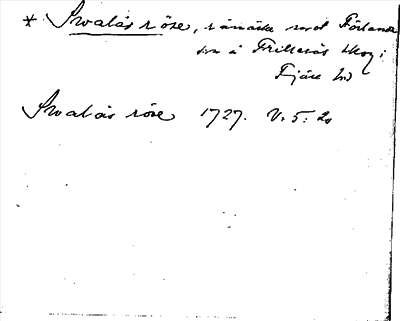 * Svalås röse, i råmärke mot Förlanda
sn å Frillesås skog i
Fjäre hd
Svalås röse 1727. V. 5: 20